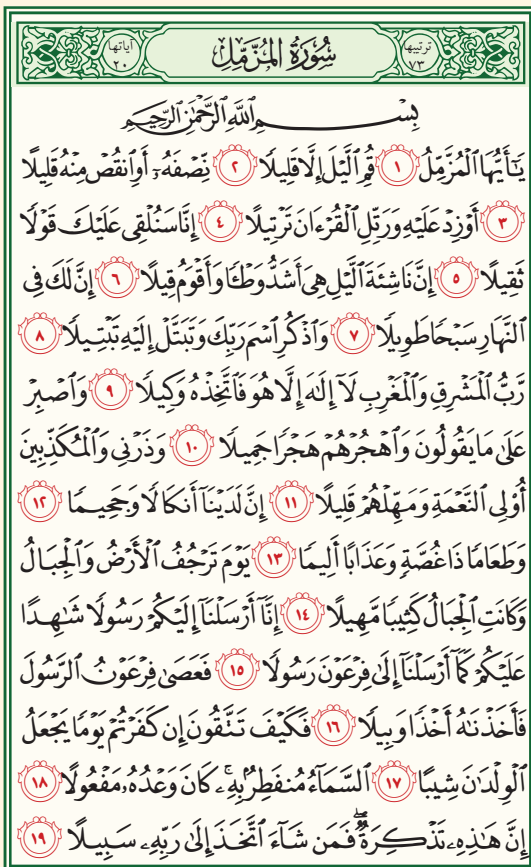 ترتيبها ٧٣ سُورَةُ الْمُزَّمِّل آياتها ٢٠
بِسْمِ اللَّهِ الرَّحْمَٰنِ الرَّحِيمِ
يَٰٓأَيُّهَا ٱلْمُزَّمِّلُ ١ قُمِ ٱلَّيْلَ إِلَّا قَلِيلًا ٢ نِّصْفَهُۥٓ أَوِ ٱنقُصْ مِنْهُ قَلِيلًا
٣ أَوْ زِدْ عَلَيْهِ وَرَتِّلِ ٱلْقُرْءَانَ تَرْتِيلًا ٤ إِنَّا سَنُلْقِى عَلَيْكَ قَوْلًا
ثَقِيلًا ٥ إِنَّ نَاشِئَةَ ٱلَّيْلِ هِىَ أَشَدُّ وَطْـًٔا وَأَقْوَمُ قِيلًا ٦ إِنَّ لَكَ فِى
ٱلنَّهَارِ سَبْحًا طَوِيلًا ٧ وَٱذْكُرِ ٱسْمَ رَبِّكَ وَتَبَتَّلْ إِلَيْهِ تَبْتِيلًا ٨
رَّبُّ ٱلْمَشْرِقِ وَٱلْمَغْرِبِ لَآ إِلَٰهَ إِلَّا هُوَ فَٱتَّخِذْهُ وَكِيلًا ٩ وَٱصْبِرْ
عَلَىٰ مَا يَقُولُونَ وَٱهْجُرْهُمْ هَجْرًا جَمِيلًا ١٠ وَذَرْنِى وَٱلْمُكَذِّبِينَ
أُو۟لِى ٱلنَّعْمَةِ وَمَهِّلْهُمْ قَلِيلًا ١١ إِنَّ لَدَيْنَآ أَنكَالًا وَجَحِيمًا ١٢
وَطَعَامًا ذَا غُصَّةٍ وَعَذَابًا أَلِيمًا ١٣ يَوْمَ تَرْجُفُ ٱلْأَرْضُ وَٱلْجِبَالُ
وَكَانَتِ ٱلْجِبَالُ كَثِيبًا مَّهِيلًا ١٤ إِنَّآ أَرْسَلْنَآ إِلَيْكُمْ رَسُولًا شَٰهِدًا
عَلَيْكُمْ كَمَآ أَرْسَلْنَآ إِلَىٰ فِرْعَوْنَ رَسُولًا ١٥ فَعَصَىٰ فِرْعَوْنُ ٱلرَّسُولَ
فَأَخَذْنَٰهُ أَخْذًا وَبِيلًا ١٦ فَكَيْفَ تَتَّقُونَ إِن كَفَرْتُمْ يَوْمًا يَجْعَلُ
ٱلْوِلْدَٰنَ شِيبًا ١٧ ٱلسَّمَآءُ مُنفَطِرٌۢ بِهِۦ ۚ كَانَ وَعْدُهُۥ مَفْعُولًا ١٨
إِنَّ هَٰذِهِۦ تَذْكِرَةٌ ۖ فَمَن شَآءَ ٱتَّخَذَ إِلَىٰ رَبِّهِۦ سَبِيلًا ١٩